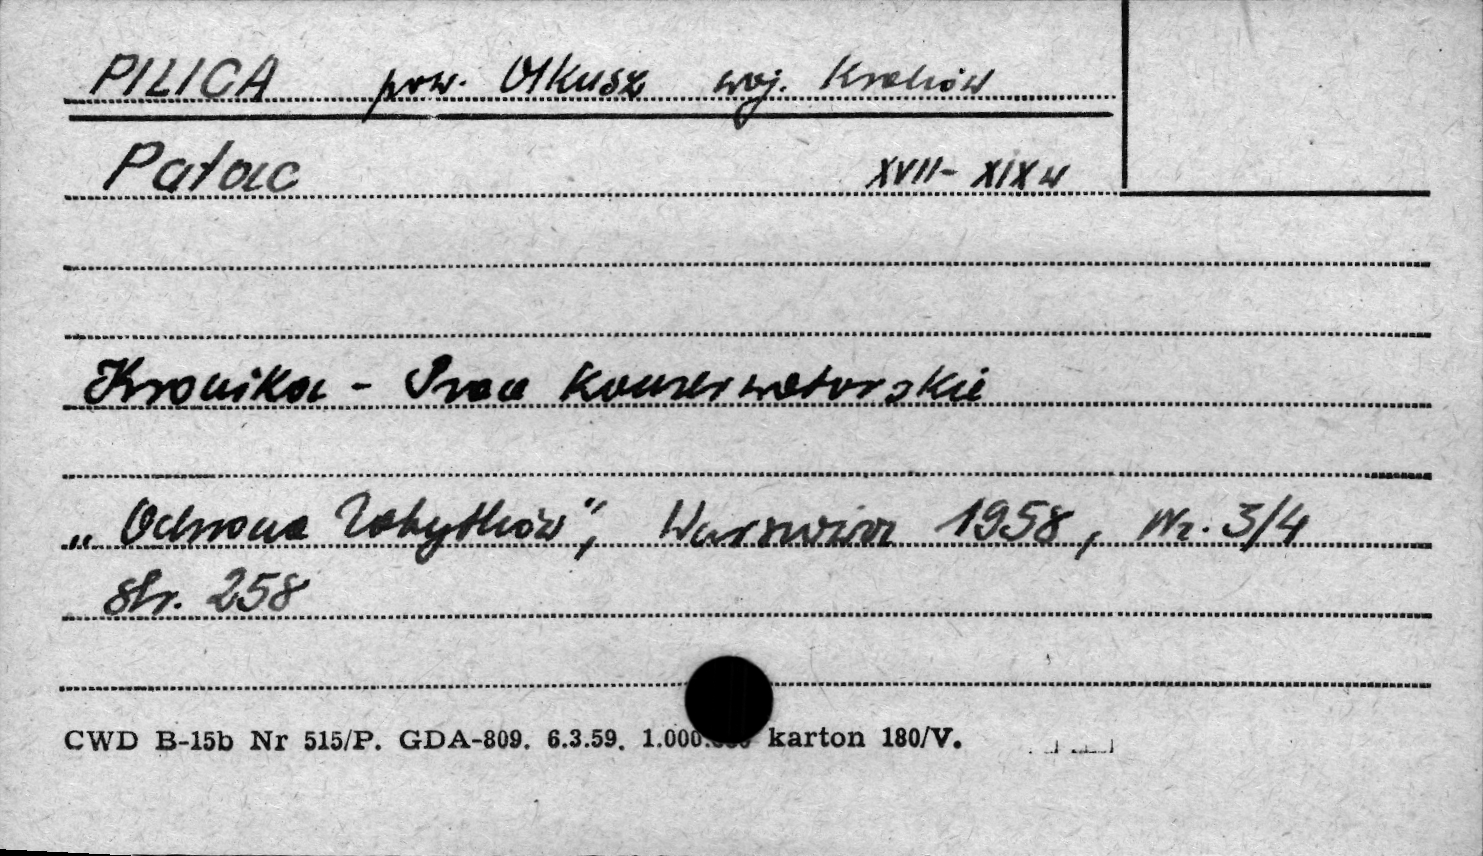 PILICA pow. Olkusz woj. Kraków
Pałac XVII-XIX w
Kronika - Prace Konserwatorskie
„Ochrona Zabytków”, Warszawa 1958, Nr. 3/4
str. 258
CWD B-15b Nr 515/P. GDA-809. 6.3.59. 1.000.000 karton 180/V.